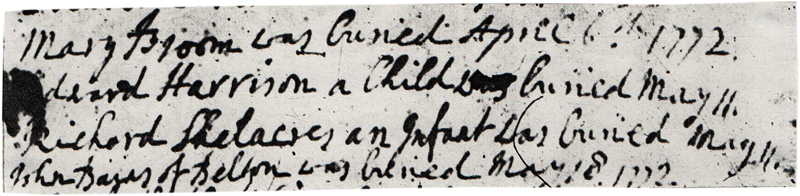 Mary Broom was buried April 6th 1772
Edward Harrison a Child was buried May 11.
Richard Shelacres an Infant was buried May 11.
John of Belton was buried May 18 1772